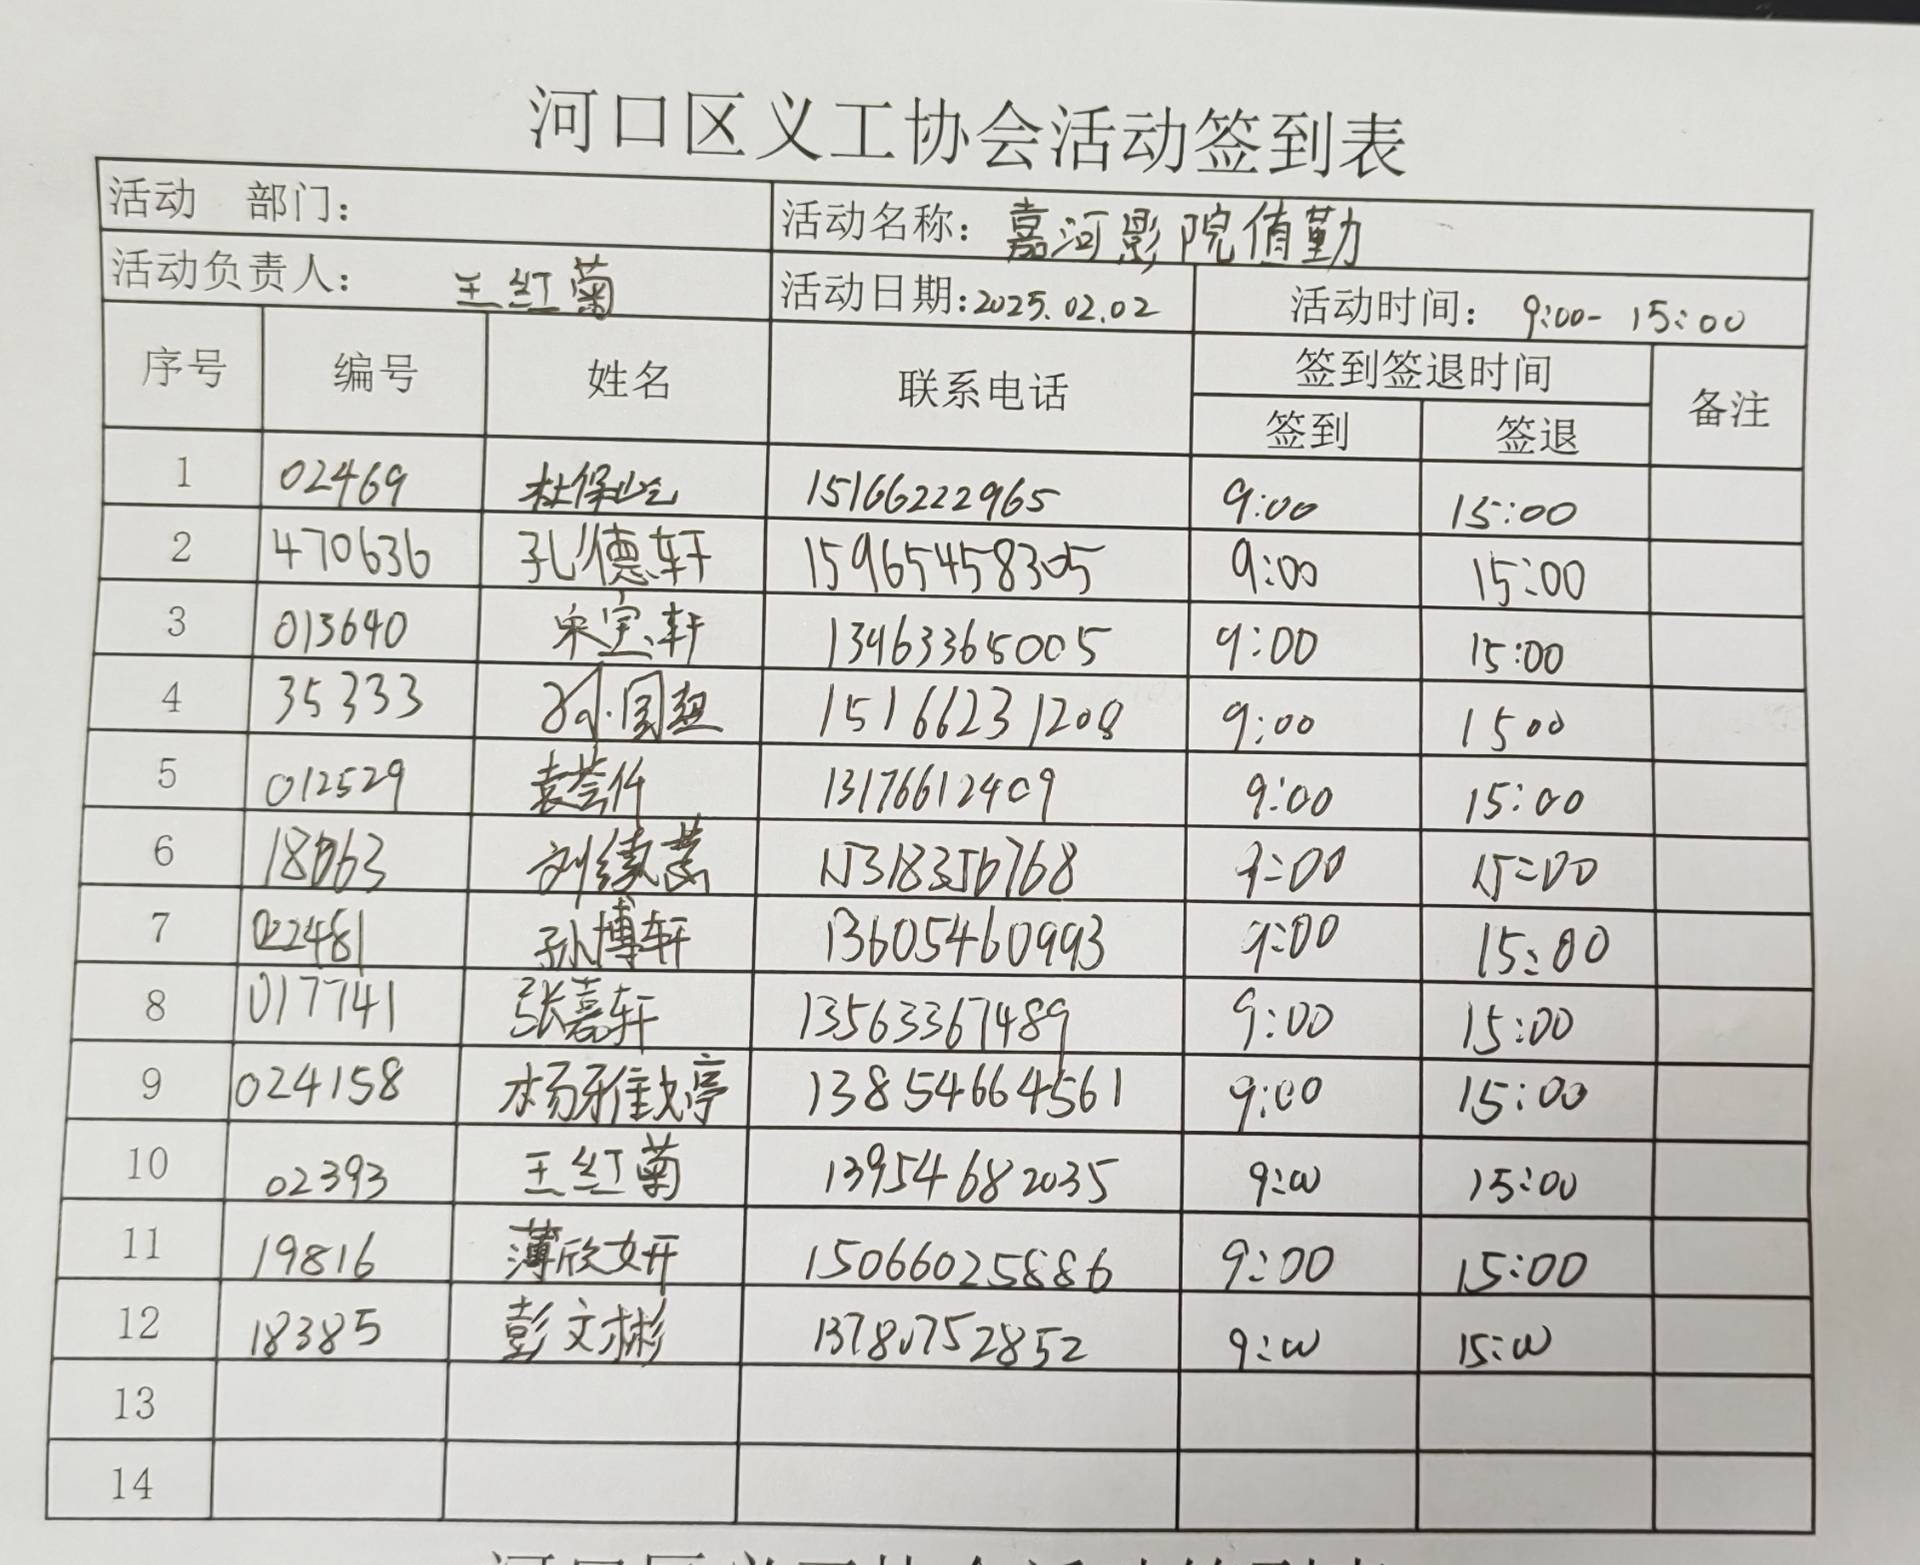 河口区义工协会活动签到表
活动 部门：
活动名称：嘉河影院值勤
活动负责人： 王红菊
活动日期：2025.02.02
活动时间： 9:00-15:00
序号 编号 姓名 联系电话 签到签退时间 备注
签到 签退
1 02469 杜保屹 15166222965 9:00 15:00
2 470636 孔德轩 15965458305 9:00 15:00
3 013640 宋宝轩 13963365005 9:00 15:00
4 35333 孙国超 15166231208 9:00 1500
5 012529 袁芸仟 13176612409 9:00 15:00
6 18063 刘续 15318356768 9:00 15:00
7 022481 孙博轩 13605460993 9:00 15:00
8 017741 张嘉轩 13563367489 9:00 15:00
9 024158 杨雅婷 13854664561 9:00 15:00
10 02393 王红菊 13954682035 9:00 15:00
11 19816 薄欣妍 15066025886 9:00 15:00
12 18385 彭文彬 13780752852 9:00 15:00
13
14